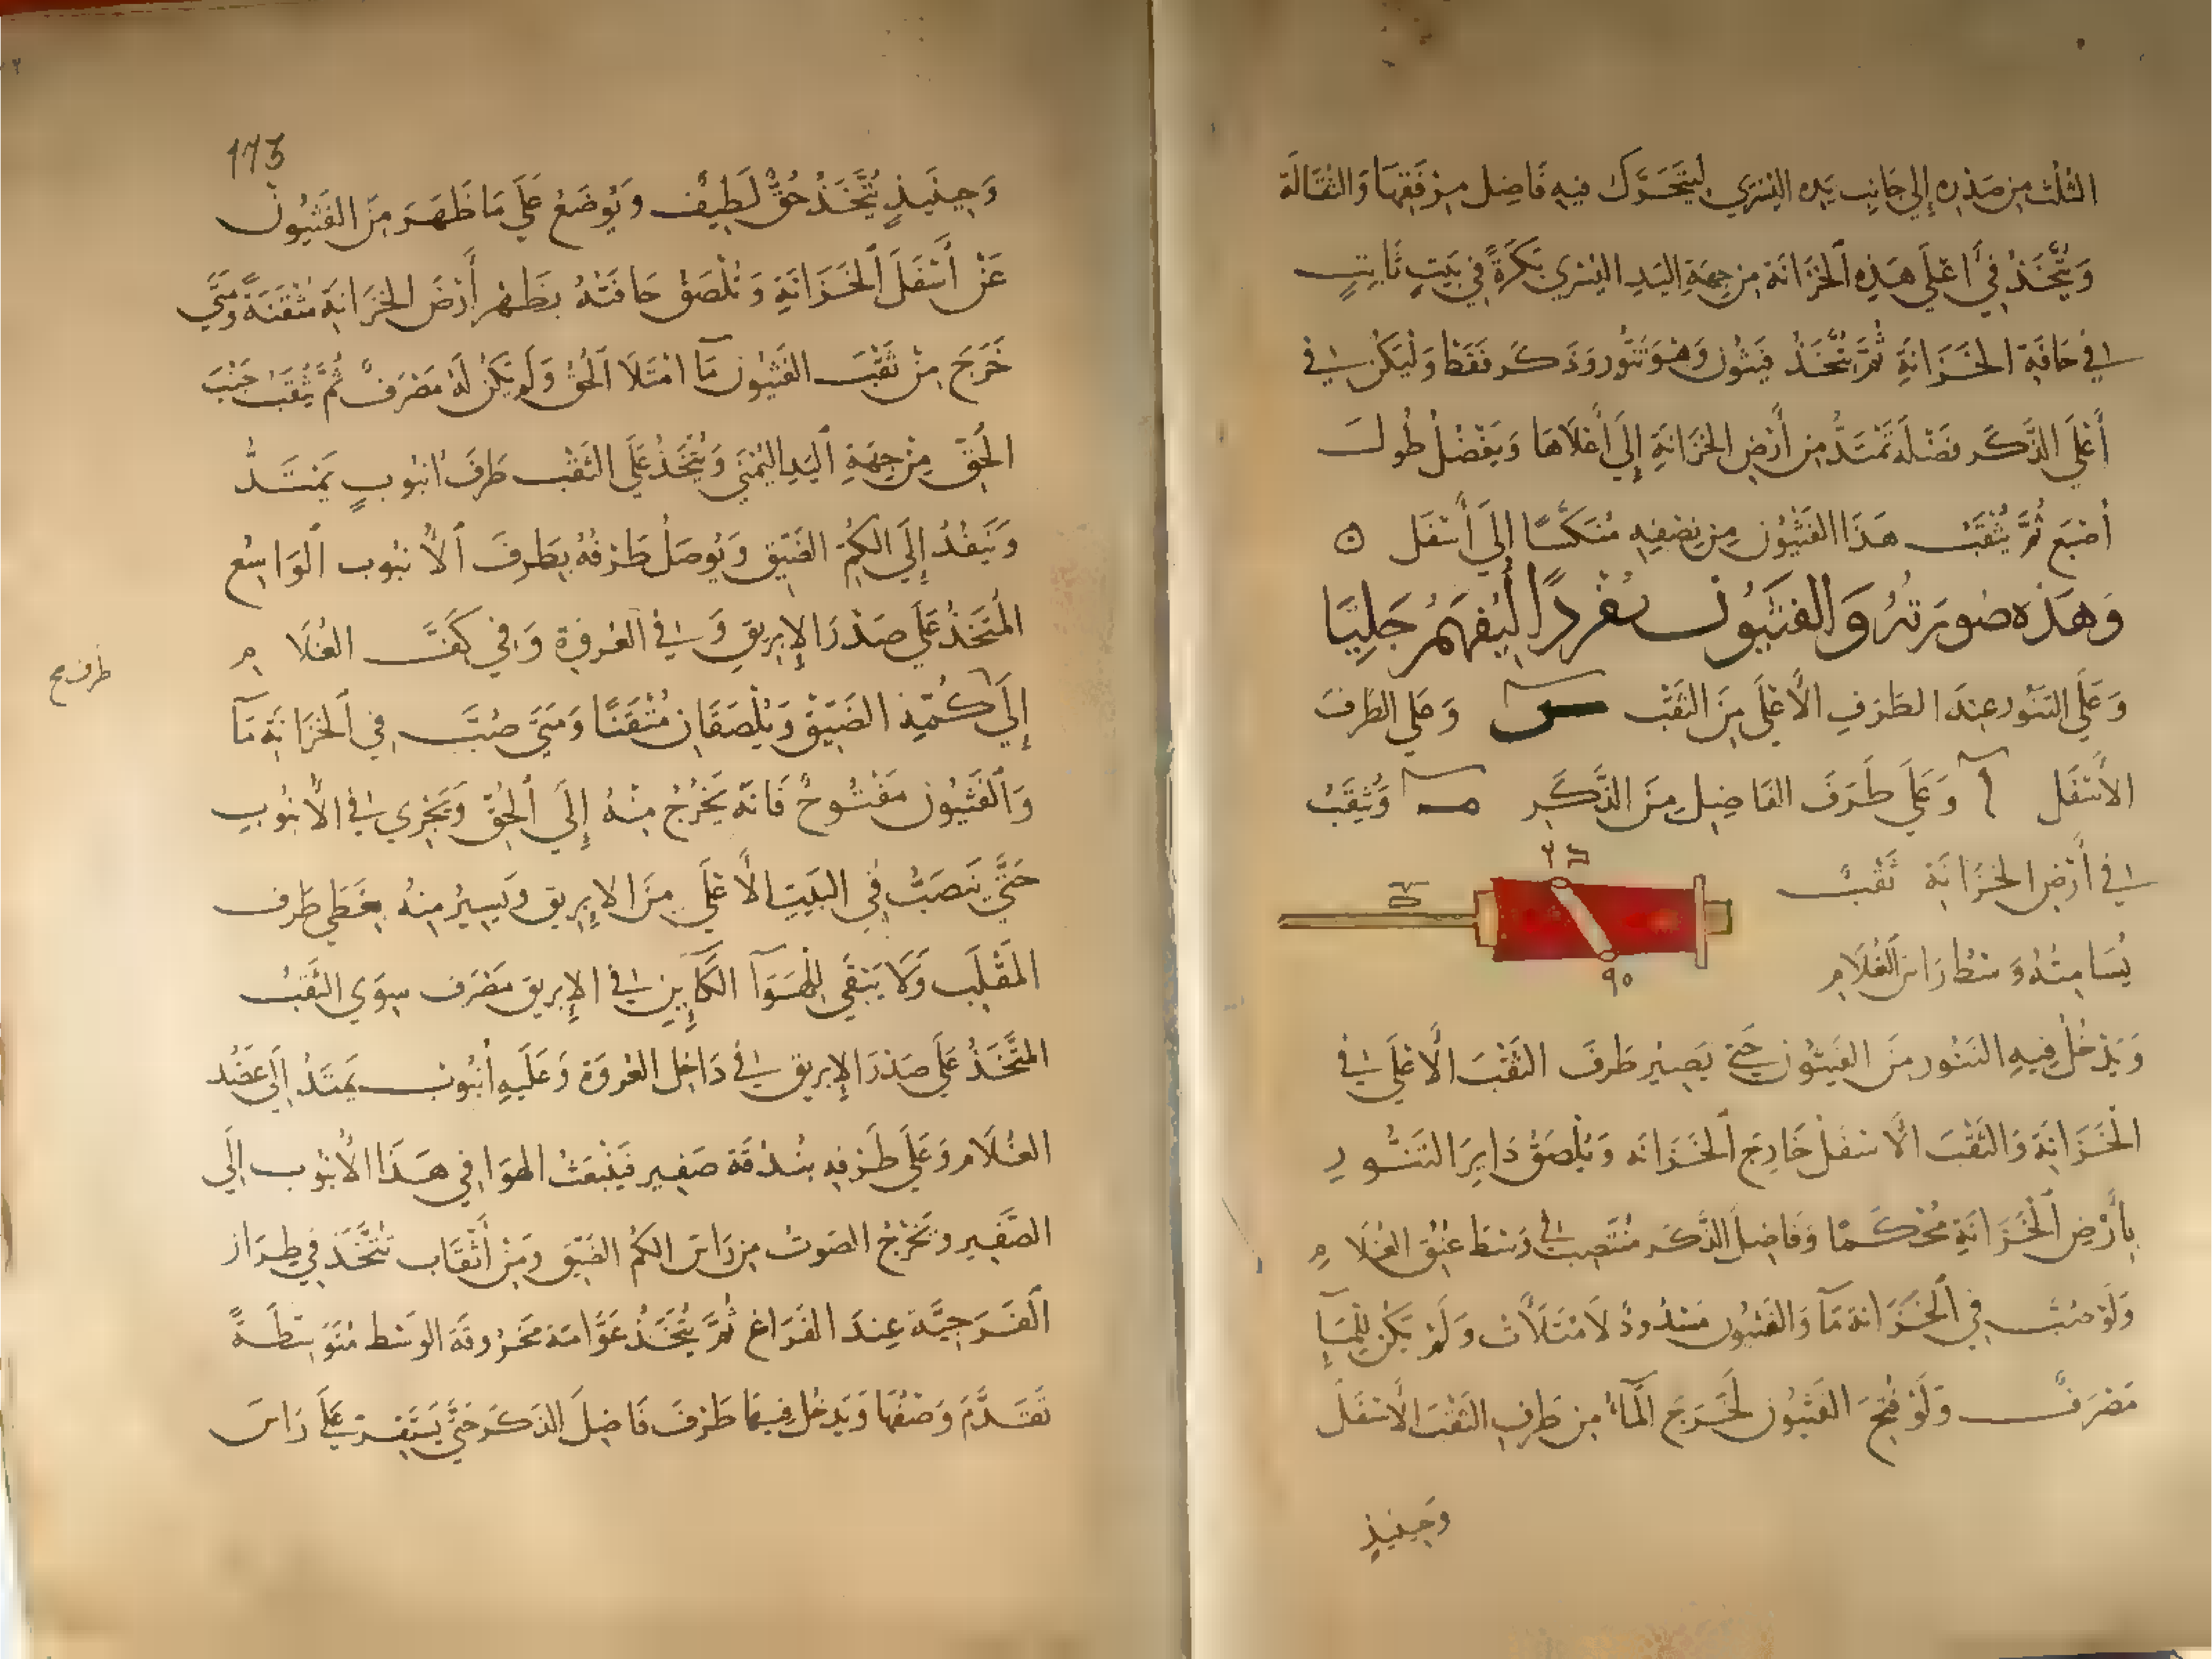 الثلث من صدره إلى جانب يده اليسرى ليتحرك فيه فاضل مرفقها والثقالة
ويتخذ في أعلى هذه الخزانة من جهة اليد اليسرى بكرة في بيت ثابت
في حافة الخزانة ثم يتخذ فيثون وهو تنور وذكر فقط وليكن في
أعلى الذكر فضلة تمتد من أرض الخزانة إلى أعلاها ويفضل طول
أصبع ثم يثقب هذا الفثيون من نصفه منكسا إلى أسفل ه
وهذه صورته والفثيون مفردا ليفهم جليا
وعلى التنور عند الطرف الأعلى من الثقب وعلى الطرف
الأسفل وعلى طرف الفاضل من الذكر ويثقب
في أرض الخزانة ثقب
يسامته وسط راس الغلام
ويدخل فيه التنور من الفيثون حتى يصير طرف الثقب الأعلى في
الخزانة والثقب الأسفل خارج الخزانه ويلصق داير التنور
بأرض الخزانة محكما وفاضل الذكر منتصب في وسط عنق الغلام
ولو صب في الخزانة مآ والفثيون مسدود لامتلأت ولم يكن للمآ
مصرف ولو فتح الفثيون لخرج المآء من طرف الثقب الأسفل
وحينيذ
173
وحينيذ يتخذ حق لطيف ويوضع على ما ظهر من الفثيون
عن أسفل الخزانة وتلصق حافته بظهر أرض الخزانة متقنة ومتى
خرج من ثقب الفثيون مآ امتلا الحق ولم يكن له مصرف ثم يثقب جنب
الحق من جهة اليد اليمنى ويتخذ على الثقب طرف انبوب يمتد
وينفذ إلى الكم الضيق ويوصل طرفه بطرف الأنبوب الواسع
المتخذ على صدر الإبريق وفي العروة وفي كف الغلام
إلى كمه الضيق ويلصقان متقنا ومتى صب في الخزانة مآ
والفثيون مفتوح فانه يخرج منه إلى الحق ويجري في الأنبوب
حتى ينصب في البيت الأعلى من الإبريق ويسير منه يغطي طرف
المقلب ولا يبقى للهوآ الكاين في الإبريق مصرف سوى الثقب
المتخذ على صدر الإبريق في داخل العروة وعليه أنبوب يمتد إلى عضد
الغلام وعلى طرفه بندقة صفير فينبعث الهوا في هذا الأنبوب إلى
الصفير ويخرج الصوت من راس الكم الضيق ومن أثقاب تتخذ في طراز
الفرجية عند الفراغ ثم يتخذ عوامة مخروقة الوسط متوسطة
تقدم وصفها ويدخل فيها طرف فاضل الذكر حتى يستقر على راس